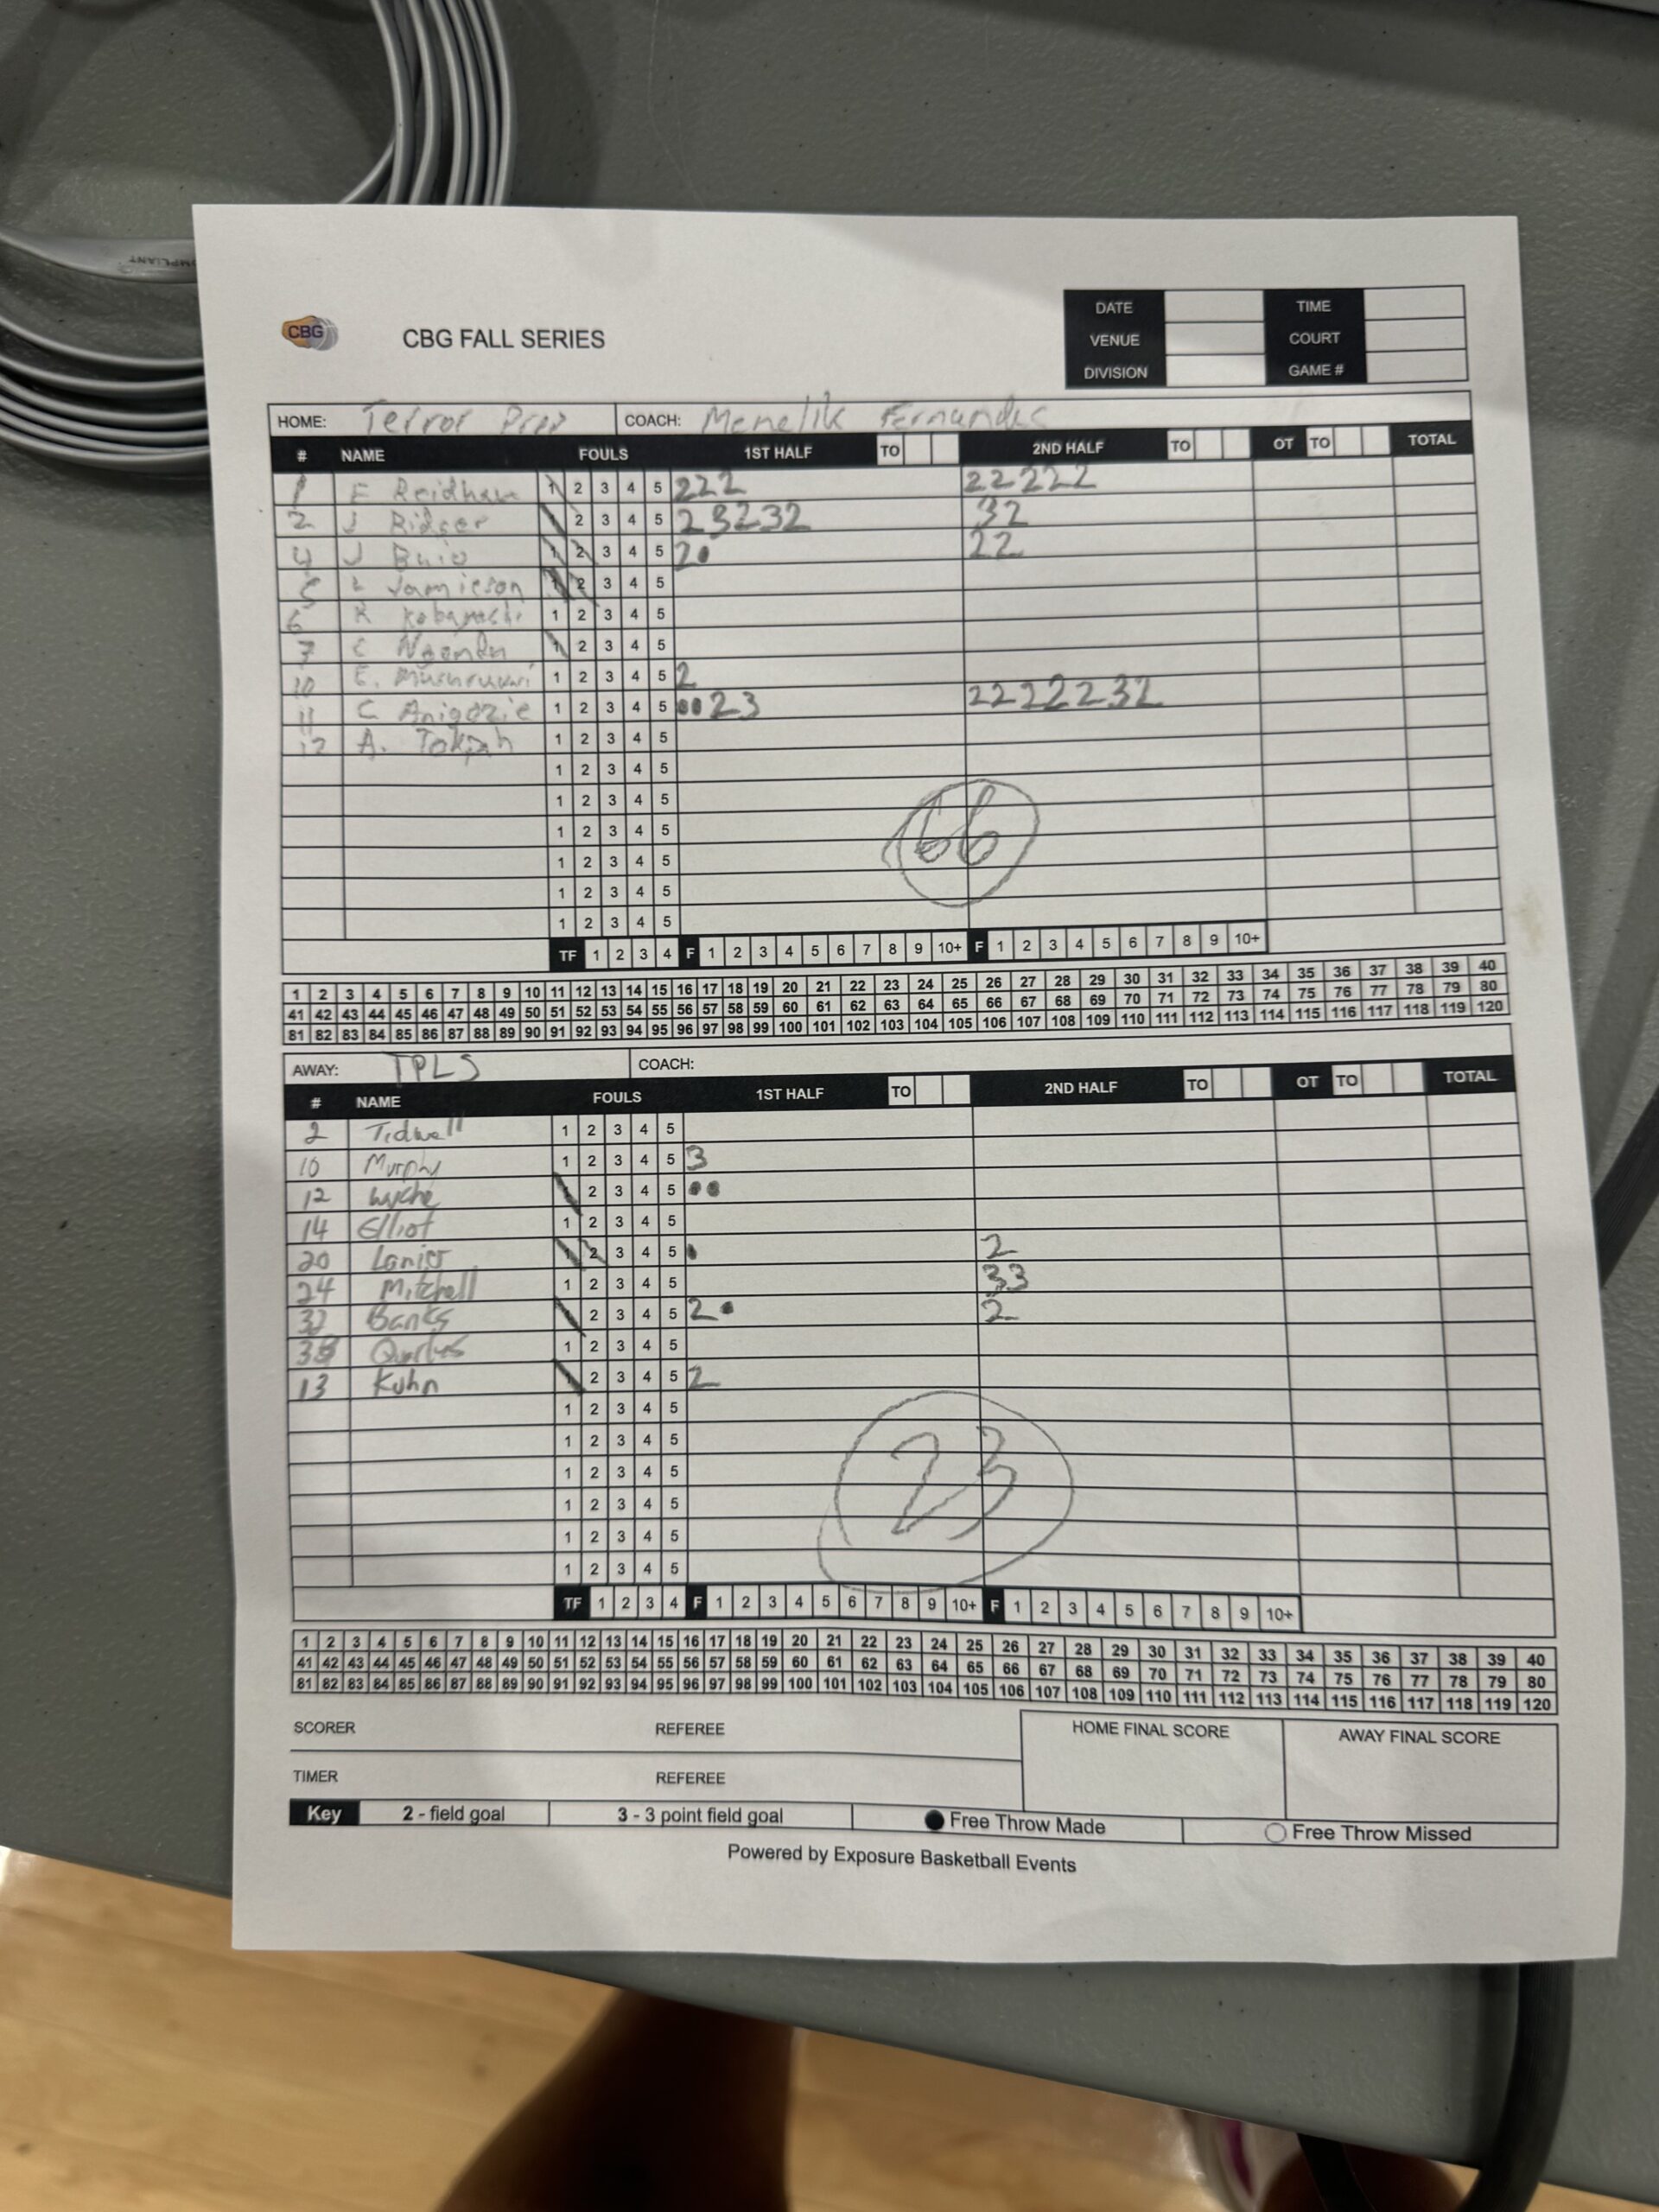 COMPLIANT
CBG
CBG FALL SERIES
DATE TIME
VENUE COURT
DIVISION GAME #
HOME: Terror Prep COACH: Menelik Fernandes
# NAME FOULS 1ST HALF TO 2ND HALF TO OT TO TOTAL
1 E Reidham 1 2 3 4 5 222 22222
2 J Ridger 2 3 4 5 23232 32
4 J Buio 1 2 3 4 5 2● 22
5 L Jamieson 1 2 3 4 5
6 K Kobayashi 1 2 3 4 5
7 C 1 2 3 4 5
10 E. 1 2 3 4 5 2
11 C Anigozie 1 2 3 4 5 ●●23 2222232
12 A. Tokpah 1 2 3 4 5
1 2 3 4 5
1 2 3 4 5
1 2 3 4 5
1 2 3 4 5
1 2 3 4 5
1 2 3 4 5
66
TF 1 2 3 4 F 1 2 3 4 5 6 7 8 9 10+ F 1 2 3 4 5 6 7 8 9 10+
1 2 3 4 5 6 7 8 9 10 11 12 13 14 15 16 17 18 19 20 21 22 23 24 25 26 27 28 29 30 31 32 33 34 35 36 37 38 39 40
41 42 43 44 45 46 47 48 49 50 51 52 53 54 55 56 57 58 59 60 61 62 63 64 65 66 67 68 69 70 71 72 73 74 75 76 77 78 79 80
81 82 83 84 85 86 87 88 89 90 91 92 93 94 95 96 97 98 99 100 101 102 103 104 105 106 107 108 109 110 111 112 113 114 115 116 117 118 119 120
AWAY: TPLS COACH:
# NAME FOULS 1ST HALF TO 2ND HALF TO OT TO TOTAL
2 Tidwell 1 2 3 4 5
10 Murphy 1 2 3 4 5 3
12 Wyche 2 3 4 5 ●●
14 Elliot 1 2 3 4 5
20 Lanier 1 2 3 4 5 ● 2
24 Mitchell 1 2 3 4 5 33
32 Banks 2 3 4 5 2● 2
35 Quarles 1 2 3 4 5
13 Kuhn 2 3 4 5 2
1 2 3 4 5
1 2 3 4 5
1 2 3 4 5
1 2 3 4 5
1 2 3 4 5
1 2 3 4 5
23
TF 1 2 3 4 F 1 2 3 4 5 6 7 8 9 10+ F 1 2 3 4 5 6 7 8 9 10+
1 2 3 4 5 6 7 8 9 10 11 12 13 14 15 16 17 18 19 20 21 22 23 24 25 26 27 28 29 30 31 32 33 34 35 36 37 38 39 40
41 42 43 44 45 46 47 48 49 50 51 52 53 54 55 56 57 58 59 60 61 62 63 64 65 66 67 68 69 70 71 72 73 74 75 76 77 78 79 80
81 82 83 84 85 86 87 88 89 90 91 92 93 94 95 96 97 98 99 100 101 102 103 104 105 106 107 108 109 110 111 112 113 114 115 116 117 118 119 120
SCORER REFEREE HOME FINAL SCORE AWAY FINAL SCORE
TIMER REFEREE
Key 2 - field goal 3 - 3 point field goal ● Free Throw Made ○ Free Throw Missed
Powered by Exposure Basketball Events